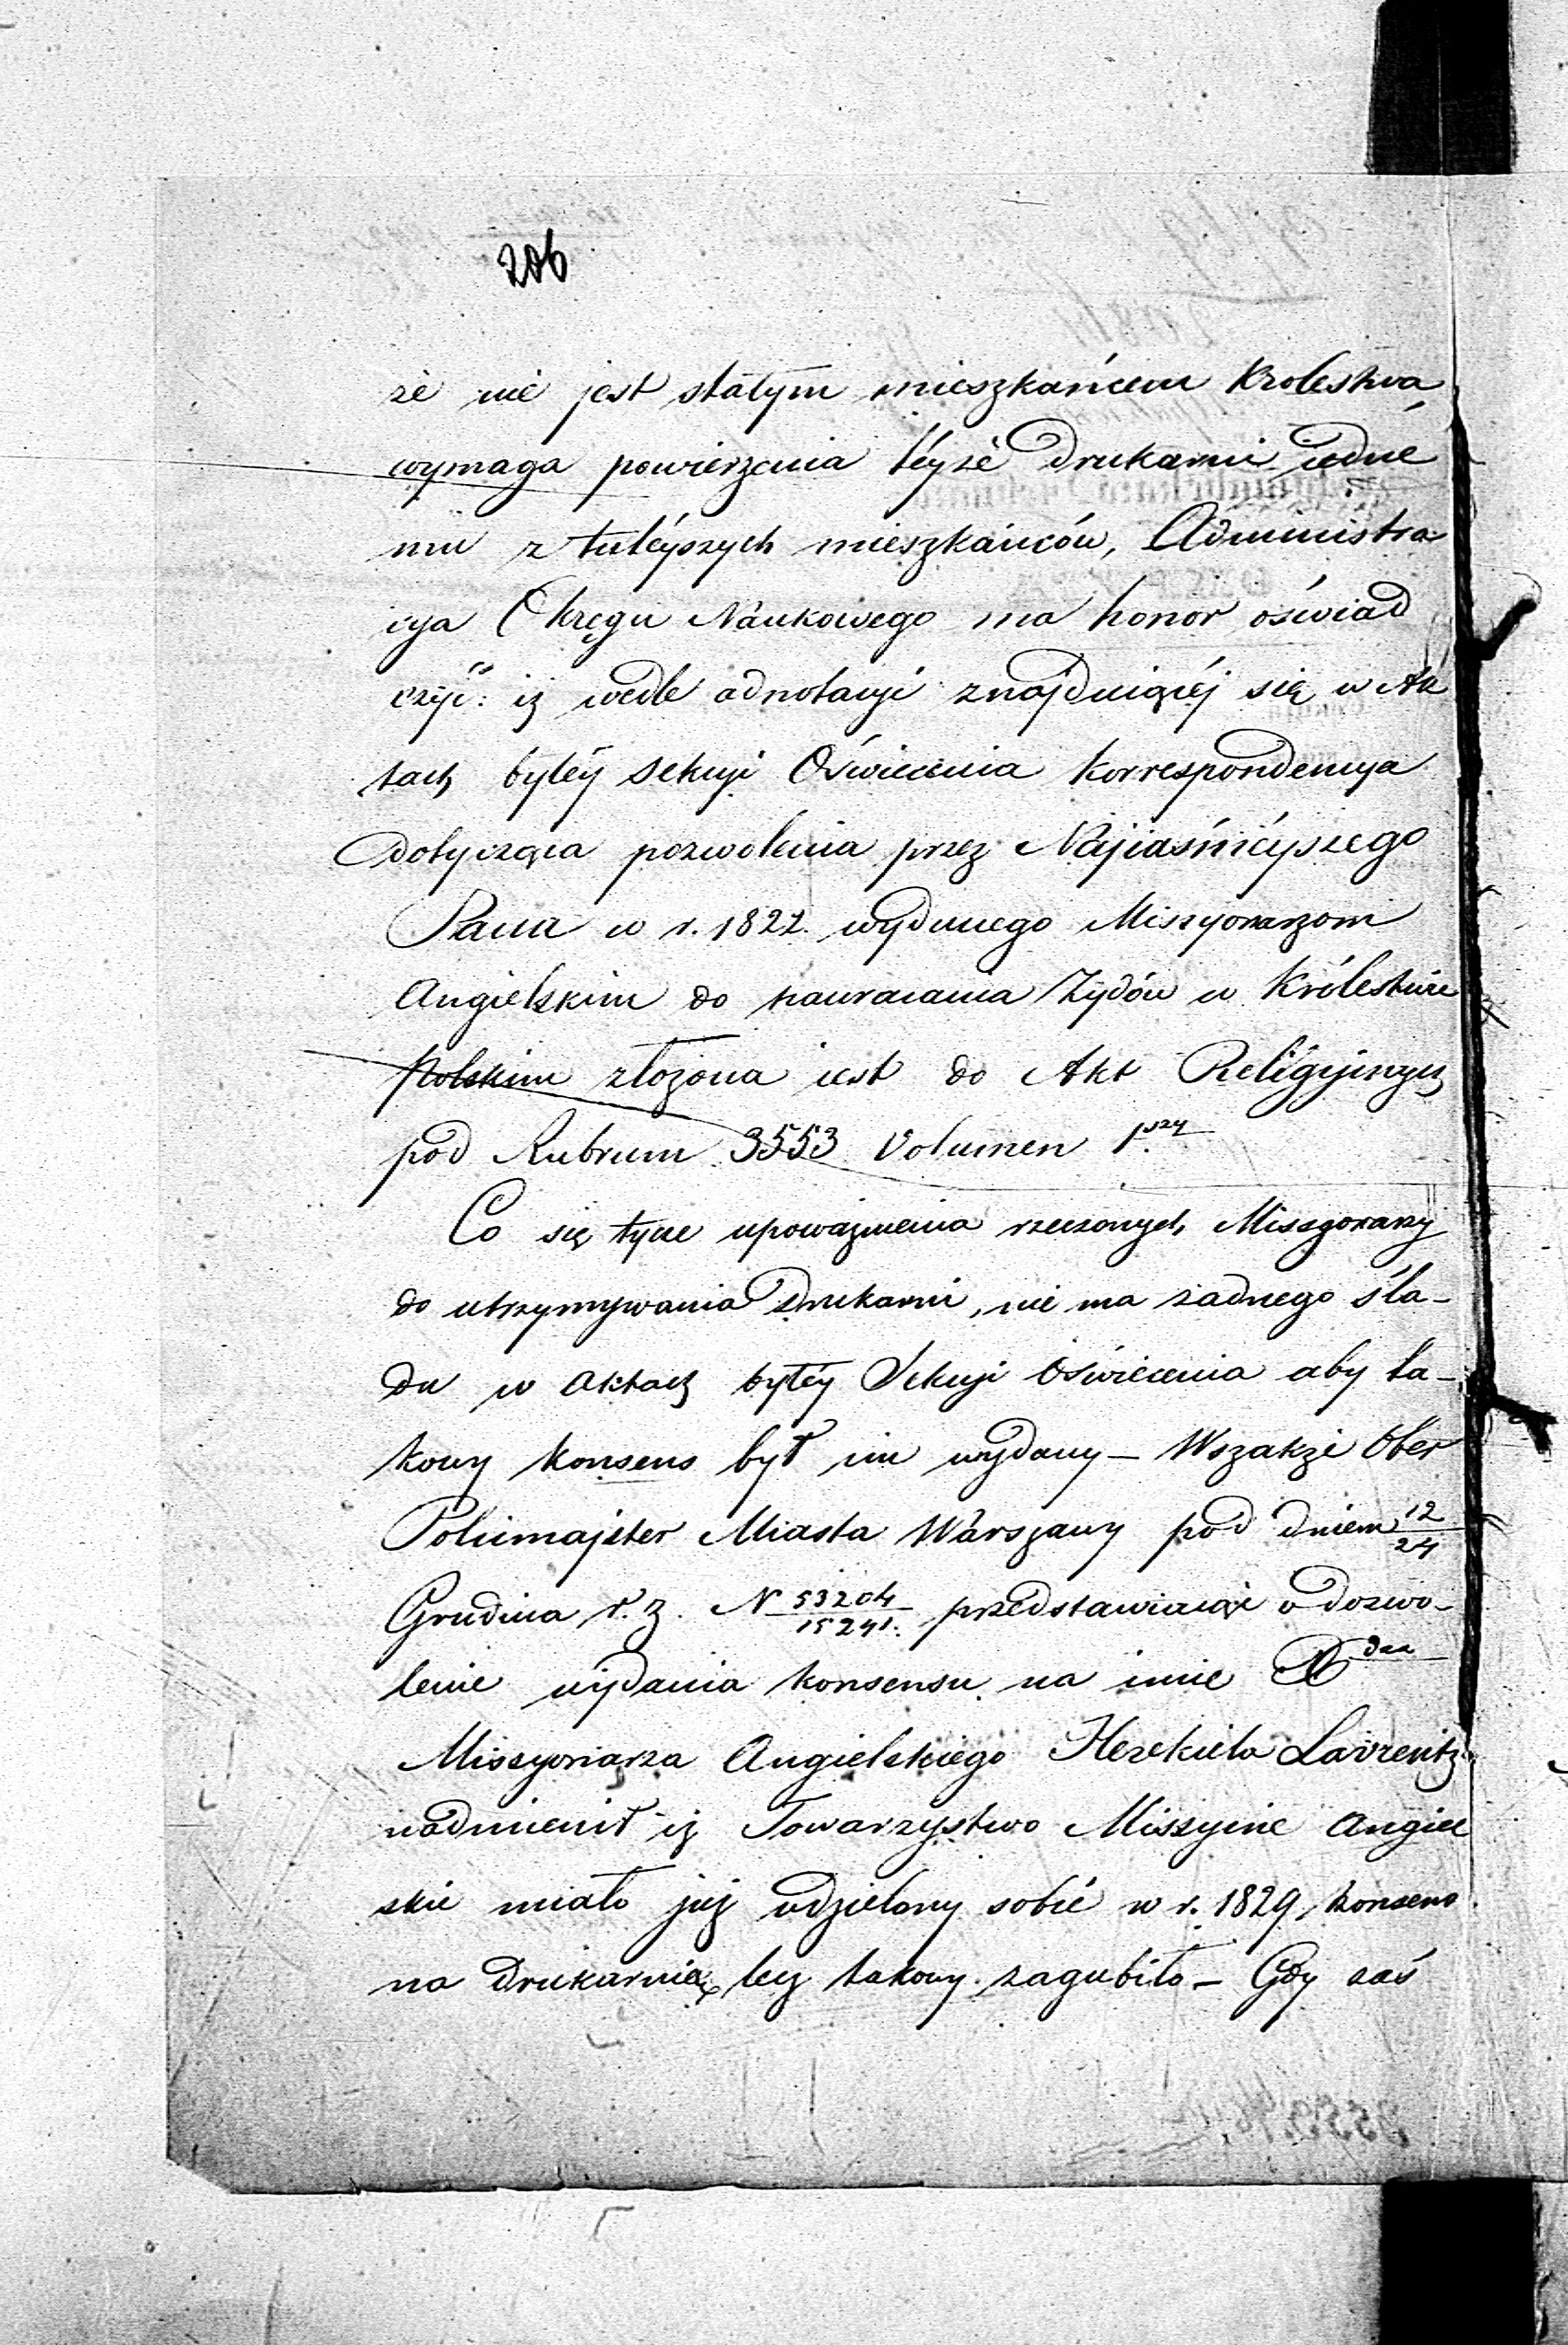 206
że nie jest stałym mieszkańcem Krolestwa
wymaga powierzenia téyże Drukarni iedne
mu z tuteyszych mieszkańców, Administra-
cya Okręgu Naukowego ma honor oświad
czyć: iż wedle adnotacyi znajduiącéj się w Ak
tach byłéy Sekcyi Oświecenia Korrespondencya
dotycząca pozwolenia przez Najiaśnieyszego
Pana w r. 1822. wydanego Missyonarzom
Angielskim do nawracania Żydów w Królestwie
Polskim złożona iest do Akt Religijnych
pod Rubrum 3553 Volumen 1szy
Co się tycze upoważnienia rzeczonych Missyonarzy
do utrzymywania Drukarni, nie ma żadnego śla-
du w aktach byłéy Sekcyi Oświecenia aby ta-
kowy konsens był im wydany – Wszakże Ober
Policmajster Miasta Warszawy pod dniem 12/24
Grudnia r. z. N 53204/15241. przedstawiaiąc o dozwo-
lenie wydania konsensu na imie
Missyonarza Angielskiego Hezekiela Lawrentz
nadmienił iż Towarzystwo Missyine Angiel
skie miało już udzielony sobie w r. 1829, konsens
na Drukarnię, lecz takowy zagubiło – Gdy zaś